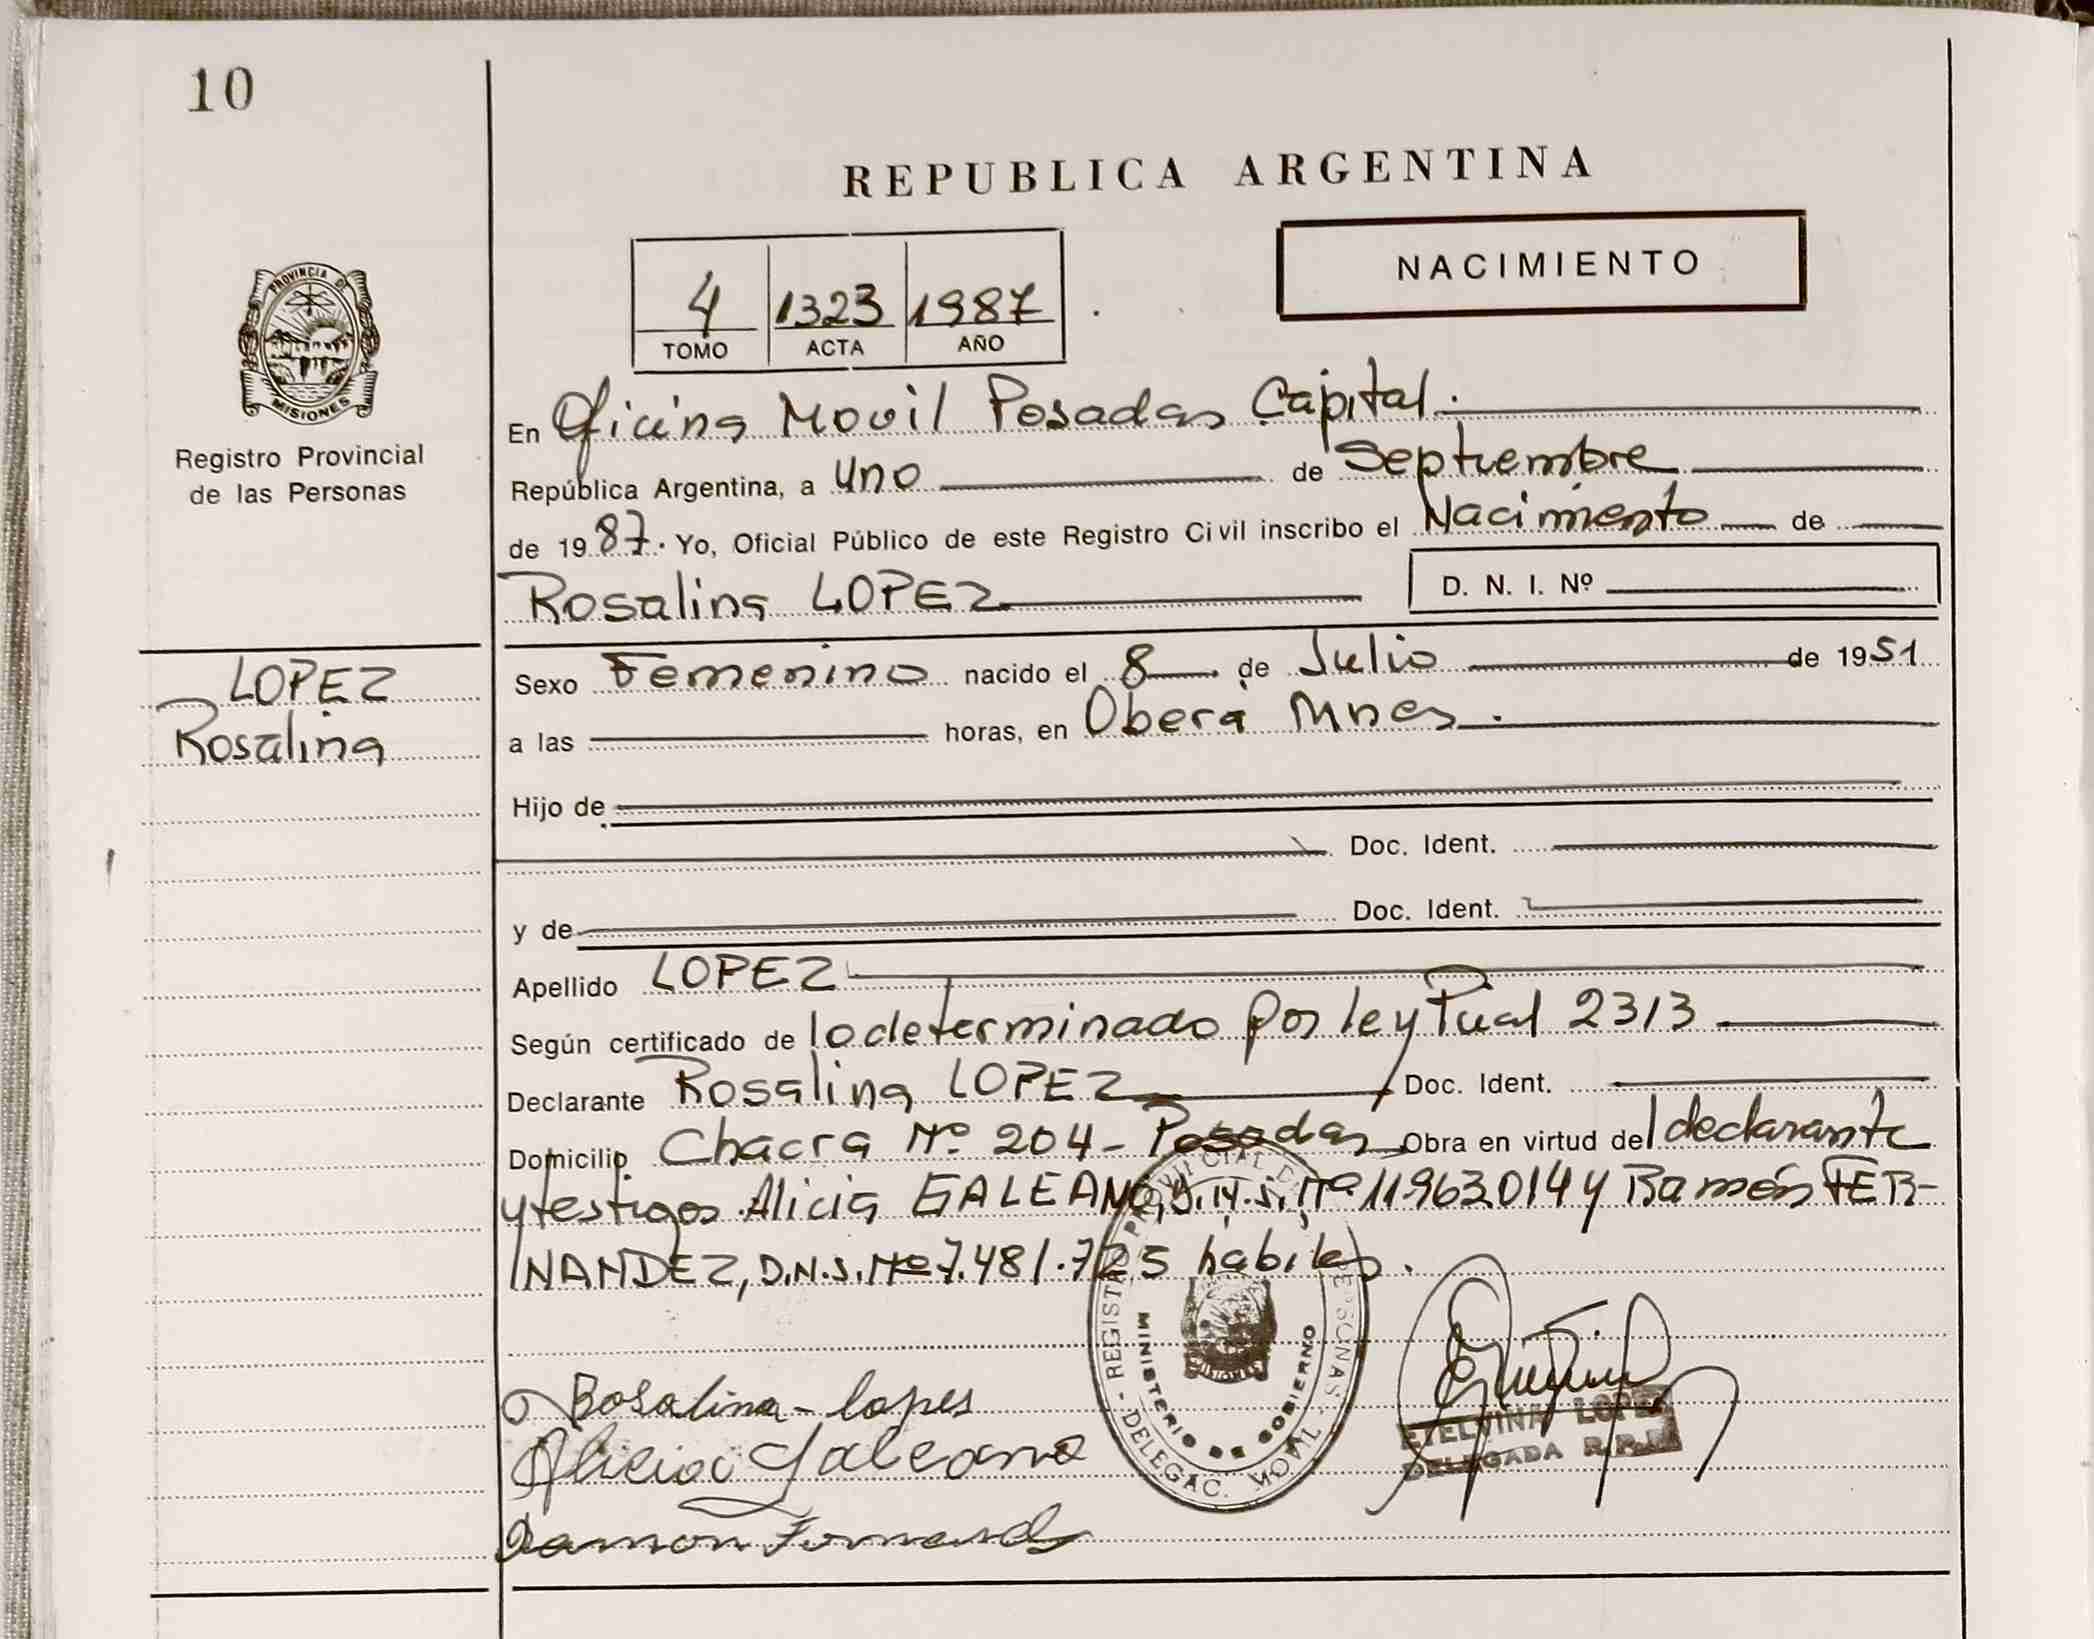 10
REPUBLICA ARGENTINA
NACIMIENTO
4 1323 1987
TOMO ACTA AÑO
PROVINCIA DE
MISIONES
Registro Provincial
de las Personas
En Oficina Movil Posadas Capital.
República Argentina, a uno de Septiembre
de 1987. Yo, Oficial Público de este Registro Civil inscribo el Nacimiento de
Rosalina LOPEZ D. N. I. Nº
LOPEZ
Rosalina
Sexo Femenino nacido el 8 de Julio de 1951
a las horas, en Oberá Mnes.
Hijo de
Doc. Ident.
y de Doc. Ident.
Apellido LOPEZ
Según certificado de lo determinado por ley Pcial 2313
Declarante Rosalina LOPEZ Doc. Ident.
Domicilio Chacra Nº 204 - Posadas Obra en virtud del declarante
y testigos Alicia GALEANO, D.N.I. Nº 11.963.014 y Ramón FER-
NANDEZ, D.N.I. Nº 7.481.725 habiles.
REGISTRO PROVINCIAL DE LAS PERSONAS - DELEGAC. MOVIL -
MINISTERIO DE GOBIERNO
Rosalina - lopes
Alicia Galeano
Ramon Fernand
ETELVINA LOPEZ
DELEGADA R.P.P.